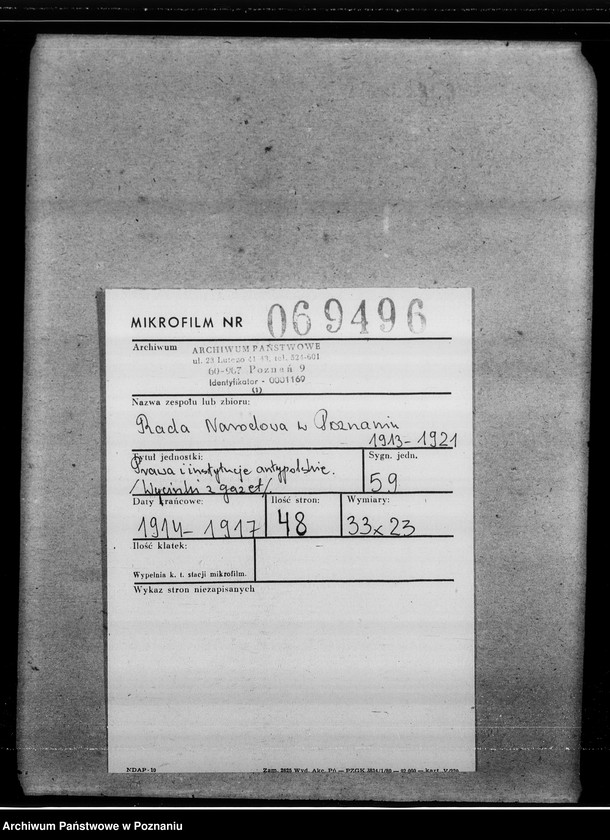 MIKROFILM NR 069496
Archiwum ARCHIWUM PAŃSTWOWE
ul. 23 Lutego 41/43, tel. 524-601
60-967 Poznań 9
Identyfikator - 0001169
(1)
Nazwa zespołu lub zbioru:
Rada Narodowa w Poznaniu
1913-1921
Tytuł jednostki: Sygn. jedn.
Prawa i instytucje antypolskie. 59
/Wycinki z gazet/
Daty krańcowe: Ilość stron: Wymiary:
1914-1917 48 33x23
Ilość klatek:
Wypełnia k. t. stacji mikrofilm.
Wykaz stron niezapisanych
NDAP-10 Zam. Wyd. Akc. Pń — PZGK
Archiwum Państwowe w Poznaniu